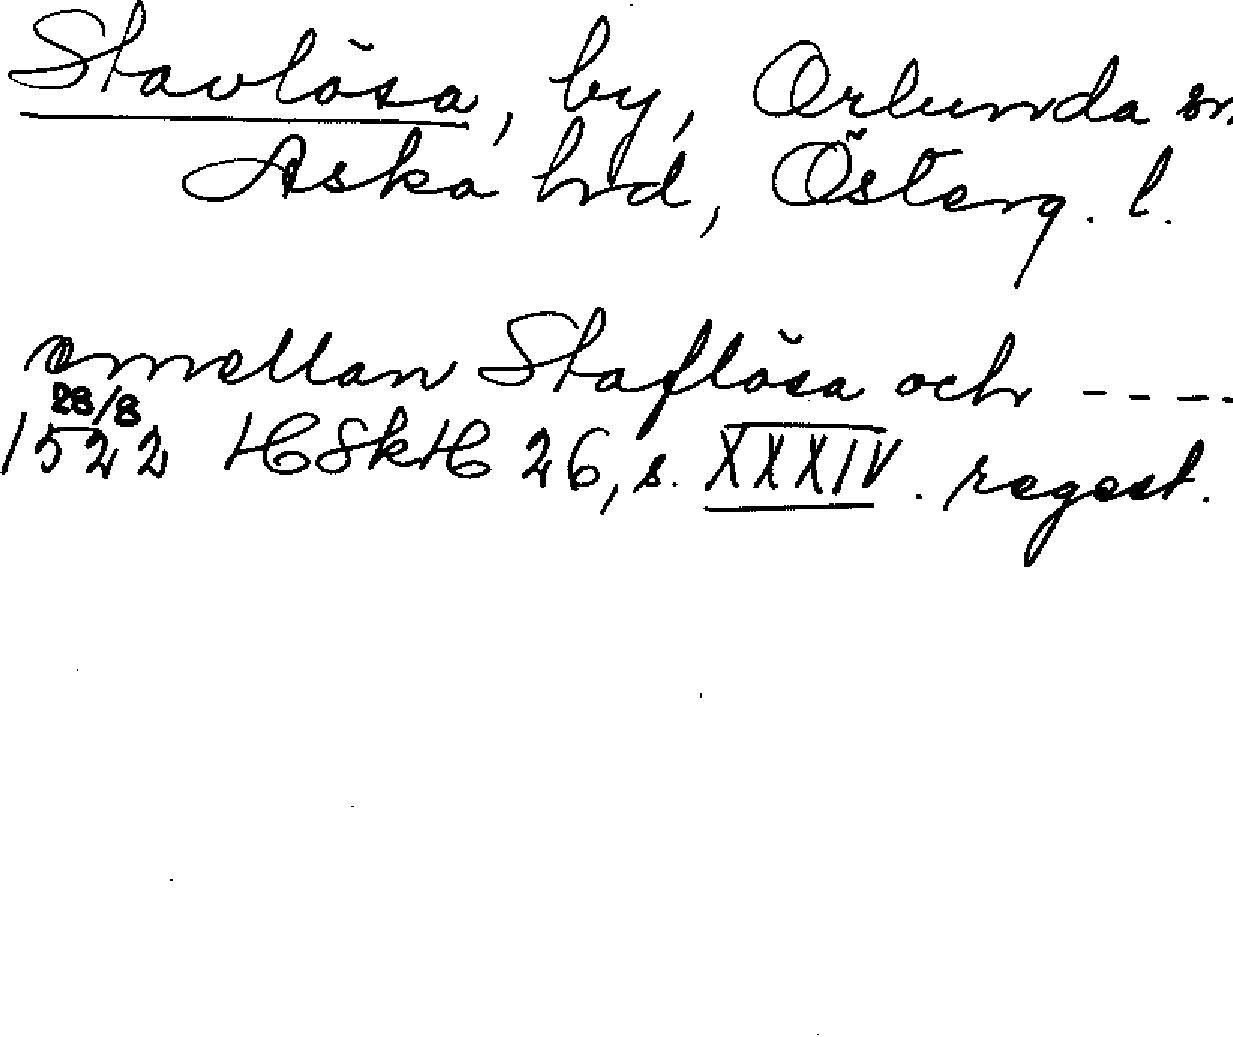 Stavlösa, by, Orlunda sn.
Aska hrd, Österg. l.
emellan Staflösa och -----
28/8
1522 HSkH 26, s. XXXIV. regest.